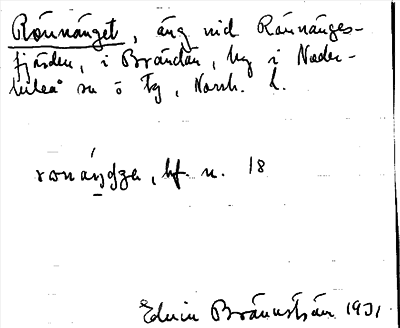 Rönnänget, äng vid Rönnänges-
fjärden, i Brändön, by i Neder-
luleå sn ö fg, Norrb. l.
hf. n. 18
Edvin Brännström 1931